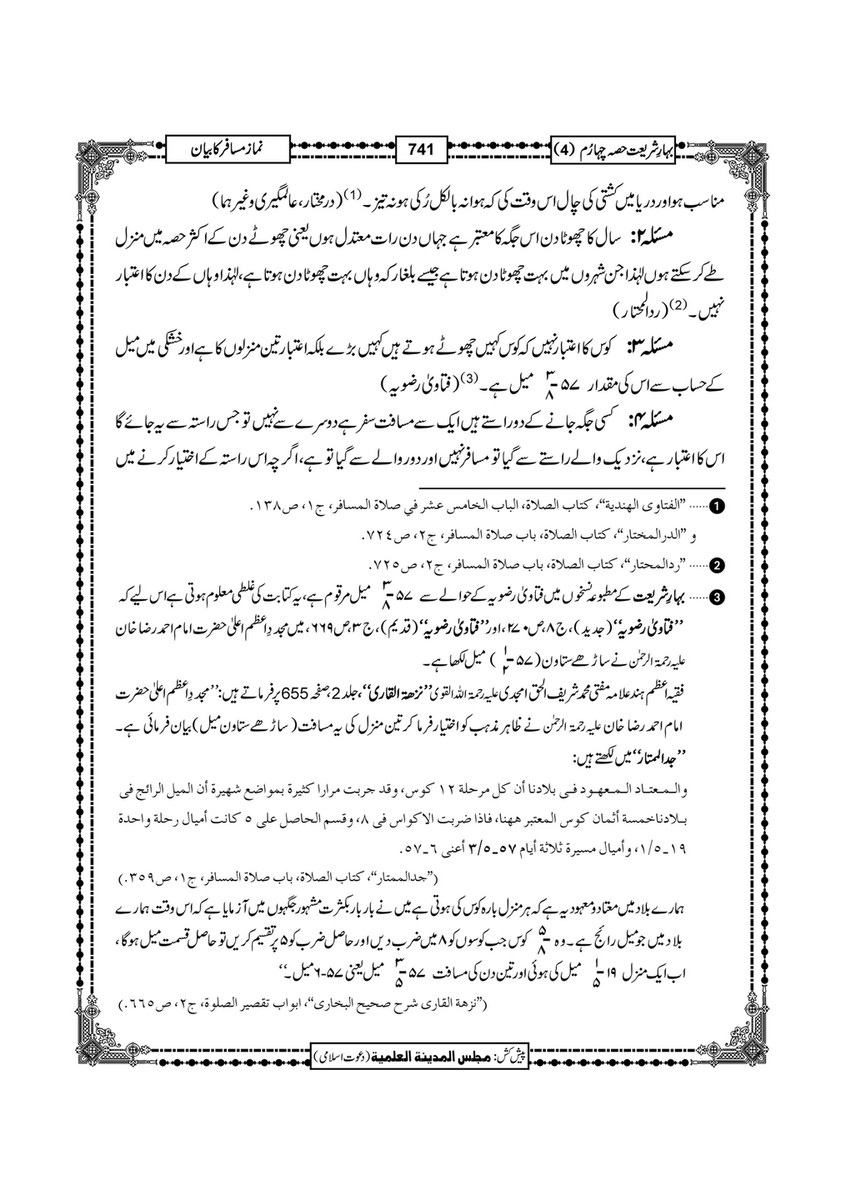 بہارِشریعت حصہ چہارم (4)
741
نمازِ مسافر کا بیان
مناسب ہو اور دریا میں کشتی کی چال اس وقت کی کہ ہوا نہ بالکل رُکی ہو نہ تیز۔(1) (درمختار، عالمگیری وغیرہما)
مسئلہ ۲: سال کا چھوٹا دن اس جگہ کا معتبر ہے جہاں دن رات معتدل ہوں یعنی چھوٹے دن کے اکثر حصہ میں منزل
طے کرسکتے ہوں لہٰذا جن شہروں میں بہت چھوٹا دن ہوتا ہے جیسے بلغار کہ وہاں بہت چھوٹا دن ہوتا ہے، لہٰذا وہاں کے دن کا اعتبار
نہیں۔(2) (ردالمحتار)
مسئلہ ۳: کوس کا اعتبار نہیں کہ کوس کہیں چھوٹے ہوتے ہیں کہیں بڑے بلکہ اعتبار تین منزلوں کا ہے اور خشکی میں میل
کے حساب سے اس کی مقدار ۵۷ ۳/۸ میل ہے۔(3) (فتاویٰ رضویہ)
مسئلہ ۴: کسی جگہ جانے کے دو راستے ہیں ایک سے مسافت سفر ہے دوسرے سے نہیں تو جس راستہ سے یہ جائے گا
اس کا اعتبار ہے، نزدیک والے راستے سے گیا تو مسافر نہیں اور دور والے سے گیا تو ہے، اگرچہ اس راستہ کے اختیار کرنے میں
1...... "الفتاوی الھندیة"، کتاب الصلاة، الباب الخامس عشر في صلاة المسافر، ج۱، ص۱۳۸.
و "الدرالمختار"، کتاب الصلاة، باب صلاة المسافر، ج۲، ص۷۲٤.
2...... "ردالمحتار"، کتاب الصلاة، باب صلاة المسافر، ج۲، ص۷۲۵.
3...... بہارِ شریعت کے مطبوعہ نسخوں میں فتاویٰ رضویہ کے حوالے سے ۵۷ ۳/۸ میل مرقوم ہے، یہ کتابت کی غلطی معلوم ہوتی ہے اس لیے کہ
"فتاویٰ رضویہ" (جدید)، ج۸، ص۲۷۰، اور "فتاویٰ رضویہ" (قدیم)، ج۳، ص۶۶۹، میں مجددِ اعظم اعلیٰ حضرت امام احمد رضا خان
علیہ رحمۃ الرحمٰن نے ساڑھے ستاون (۵۷ ۱/۲) میل لکھا ہے۔
فقیہ اعظم ہند علامہ مفتی محمد شریف الحق امجدی علیہ رحمۃ اللہ القوی "نزھة القاری"، جلد 2، صفحہ 655 پر فرماتے ہیں: "مجددِ اعظم اعلیٰ حضرت
امام احمد رضا خان علیہ رحمۃ الرحمٰن نے ظاہر مذہب کو اختیار فرما کر تین منزل کی یہ مسافت (ساڑھے ستاون میل) بیان فرمائی ہے۔
"جدالممتار" میں لکھتے ہیں:
والـمـعتـاد الـمـعهـود فـی بلادنا أن کل مرحلة ۱۲ کوس، وقد جربت مرارا کثیرة بمواضع شهیرة أن المیل الرائج فی
بـلادناخمسة أثمان کوس المعتبر ههنا، فاذا ضربت الاکواس فی ۸، وقسم الحاصل علی ۵ کانت أمیال رحلة واحدة
۱۹ـ۱/۵، وأمیال مسیرة ثلاثة أیام ۵۷ـ۳/۵ أعنی ٦ـ۵۷.
("جدالممتار"، کتاب الصلاة، باب صلاة المسافر، ج۱، ص۳۵۹.)
ہمارے بلاد میں معتاد و معہود یہ ہے کہ ہر منزل بارہ کوس کی ہوتی ہے میں نے بار بار بکثرت مشہور جگہوں میں آزمایا ہے کہ اس وقت ہمارے
بلاد میں جو میل رائج ہے۔ وہ ۵/۸ کوس جب کوسوں کو ۸ میں ضرب دیں اور حاصل ضرب کو ۵ پر تقسیم کریں تو حاصل قسمت میل ہوگا،
اب ایک منزل ۱۹ ۱/۵ میل کی ہوئی اور تین دن کی مسافت ۵۷ ۳/۵ میل یعنی ۵۷-۶ میل۔"
("نزهة القاری شرح صحیح البخاری"، ابواب تقصیر الصلوة، ج۲، ص٦٦۵.)
پیش کش: مجلس المدینة العلمیة (دعوتِ اسلامی)